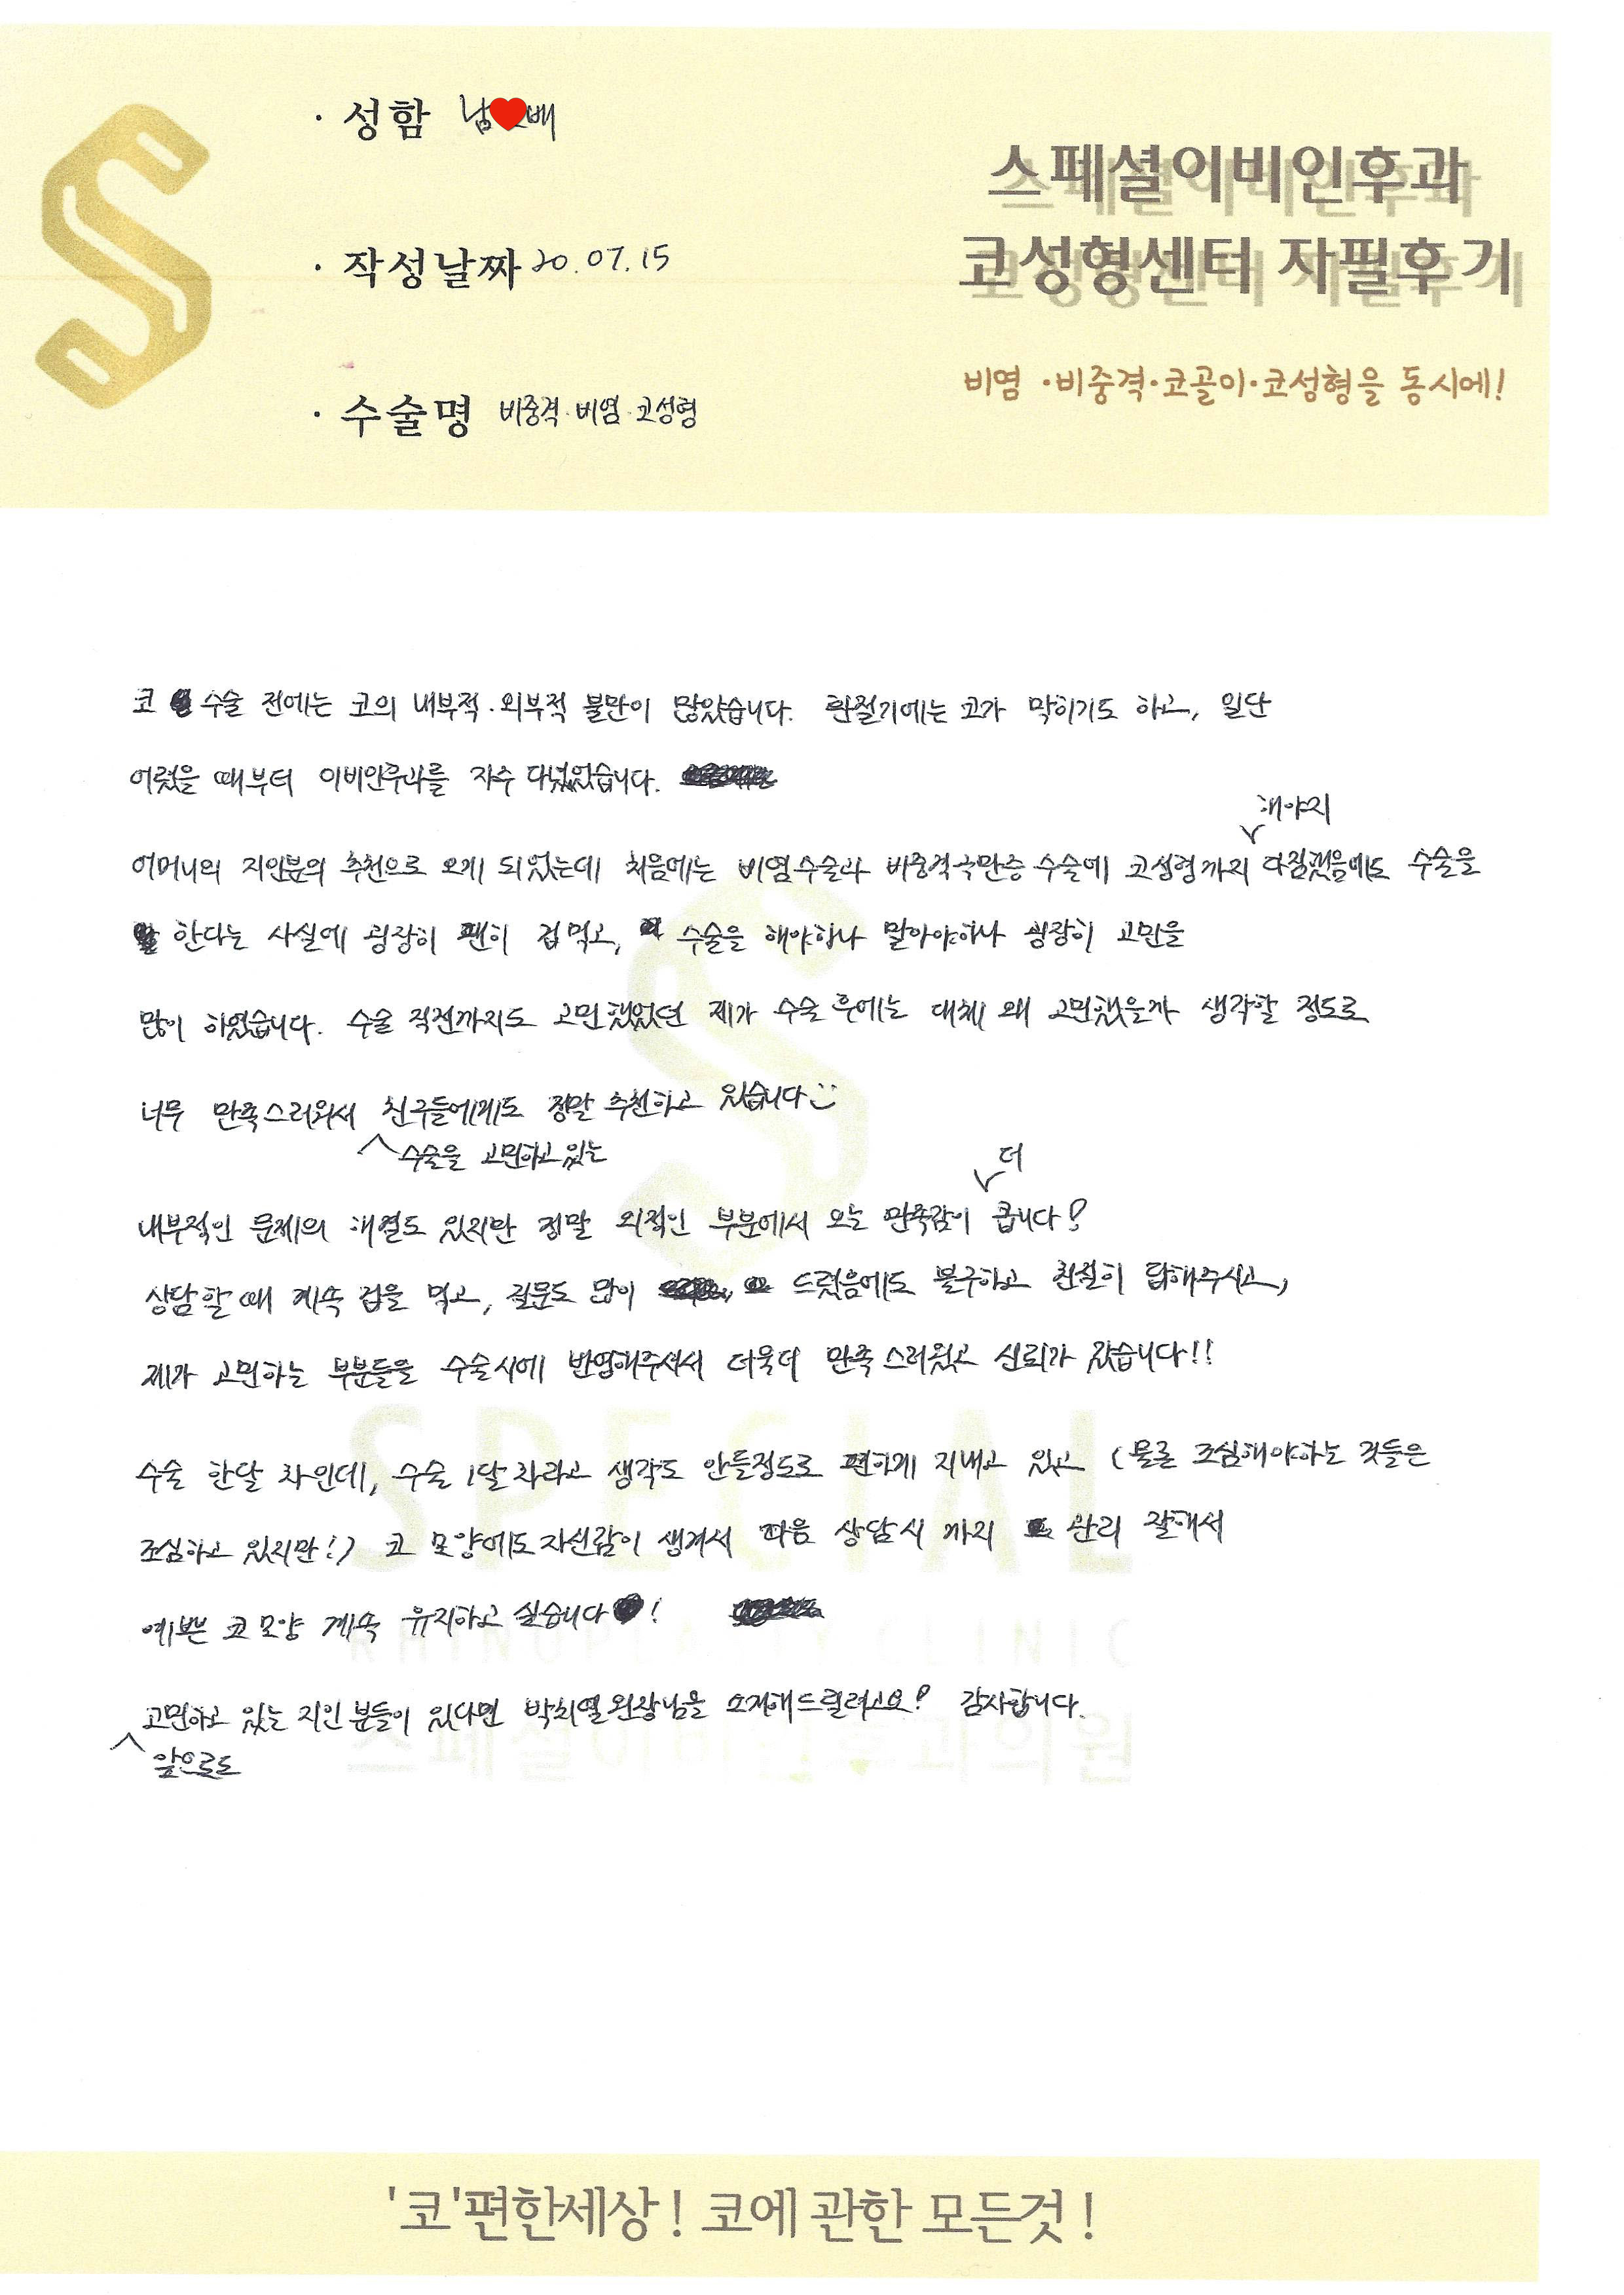 · 성함 남 배
스페셜이비인후과
코성형센터 자필후기
· 작성날짜 20.07.15
비염 ·비중격·코골이·코성형을 동시에!
· 수술명 비중격·비염·코성형
코 수술 전에는 코의 내부적·외부적 불만이 많았습니다. 환절기에는 코가 막히기도 하고, 일단
어렸을 때부터 이비인후과를 자주 다녔었습니다.
해야지
어머니의 지인분의 추천으로 오게 되었는데 처음에는 비염수술과 비중격만곡증 수술에 코성형까지 다짐했음에도 수술을
한다는 사실에 굉장히 괜히 겁먹고, 수술을 해야하나 말아야하나 굉장히 고민을
많이 하였습니다. 수술 직전까지도 고민했었던 제가 수술 후에는 대체 왜 고민했을까 생각할 정도로
너무 만족스러워서 친구들에게도 정말 추천하고 있습니다
수술을 고민하고 있는
더
내부적인 문제의 해결도 있지만 정말 외적인 부분에서 오는 만족감이 큽니다!
상담할 때 계속 겁을 먹고, 질문도 많이 드렸음에도 불구하고 친절히 답해주시고,
제가 고민하는 부분들을 수술시에 반영해주셔서 더욱더 만족스러웠고 신뢰가 갔습니다!!
수술 한달 차인데, 수술 1달차라고 생각도 안들정도로 편하게 지내고 있고 (물론 조심해야하는 것들은
조심하고 있지만!) 코 모양에도 자신감이 생겨서 다음 상담시 까지 관리 잘해서
예쁜 코모양 계속 유지하고 싶습니다!
고민하고 있는 지인 분들이 있다면 원장님을 소개해드릴려고요! 감사합니다.
앞으로도
SPECIAL
RHINOPLASTY CLINIC
스페셜이비인후과의원
'코'편한세상! 코에 관한 모든것!